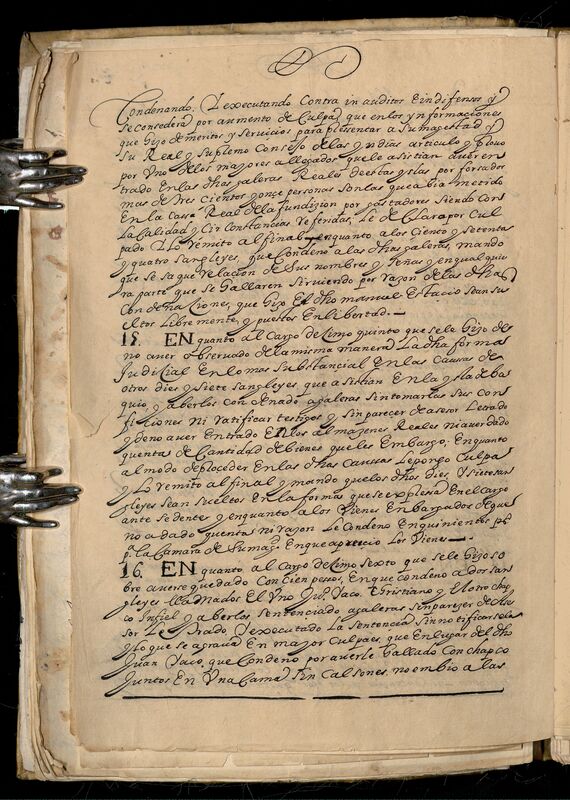 Condenando. Y executando Contra in auditos E indifensos y
se consedera por aumento de Culpa que en los ynformaciones
que hizo de meritos y servicios para presentar a Su magestad y
Su Real y Supremo Consejo de las yndias articulo y provo
por Uno de los mayores allegados que le asistian aver en
trado En las dhas galeras Reales de esbas yslas por forsados
mas de tres cientos y onçe personas son las que abia metido
En la Cassa Real de la fundizion por gastadores siendo Con
la Calidad y Circonstancias referidas, Le declara por Cul
pado Y Lo remito al final y enquanto a los Ciento y Setenta
y quatro Sangleyes, que Condeno a las dhas galeras, mando
que se saque relacion de sus nombres y señas y en qualquie
ra parte que se hallaren Sirviendo por razon de las dhas
Condenaciones, que hizo El dho manuel Estacio sean su
eltos Libremente, y puestos En libertad.
15. EN quanto al Cargo decimo quinto que se le hizo de
no aver observado de la misma manera La dha forma
Judicial En lo mas substancial En las Causas de
otros dies y siete sangleyes, que asistian En la ysla de ba
quio, y aberlos Condenado a galeras sin tomarlas sus Con
ficiones ni ratificar testigos y sin parecer de asesor Letrado
y de no aver Entrado En los almazenes Reales ni aver dado
quenta de Cantidad de bienes que les Embargo, Enquanto
al modo de proceder En las dhas Causas Le pongo Culpa
y Lo remito al final y mando que los dhos dies y siete san
gleyes sean sueltos En la forma que se expresa En el cargo
ante sedente y enquanto a los Vienes Embargados de que
no a dado quenta ni razon Le Condeno En quinientos ps
pa. la Camara de Su magd. En que aprecio Los Vienes
16. EN quanto al Cargo decimo Sexto que se le hizo so
bre averse quedado Con Cien pessos, En que condeno a dos san
gleyes llamados El Uno Juo. Yaco. Christiano y El otro chap
co Infiel y aberlos Sentenciado a galeras sin pareser de Ase
sor Letrado Y executado La sentencia Sin notificarsela
y Lo que se agrava En mayor Culpa es, que En lugar del dho
Juan Yaco, que Condeno por averle hallado Con chapco
Juntos En Una Cama Sin Calsones, no embio a las